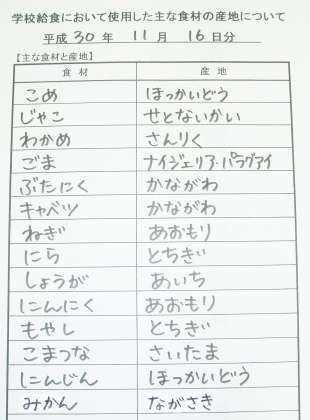 学校給食において使用した主な食材の産地について
平成 30 年 11 月 16 日分
【主な食材と産地】
食材 産地
こめ ほっかいどう
じゃこ せとないかい
わかめ さんりく
ごま ナイジェリア・パラグアイ
ぶたにく かながわ
キャベツ かながわ
ねぎ あおもり
にら とちぎ
しょうが あいち
にんにく あおもり
もやし とちぎ
こまつな さいたま
にんじん ほっかいどう
みかん ながさき